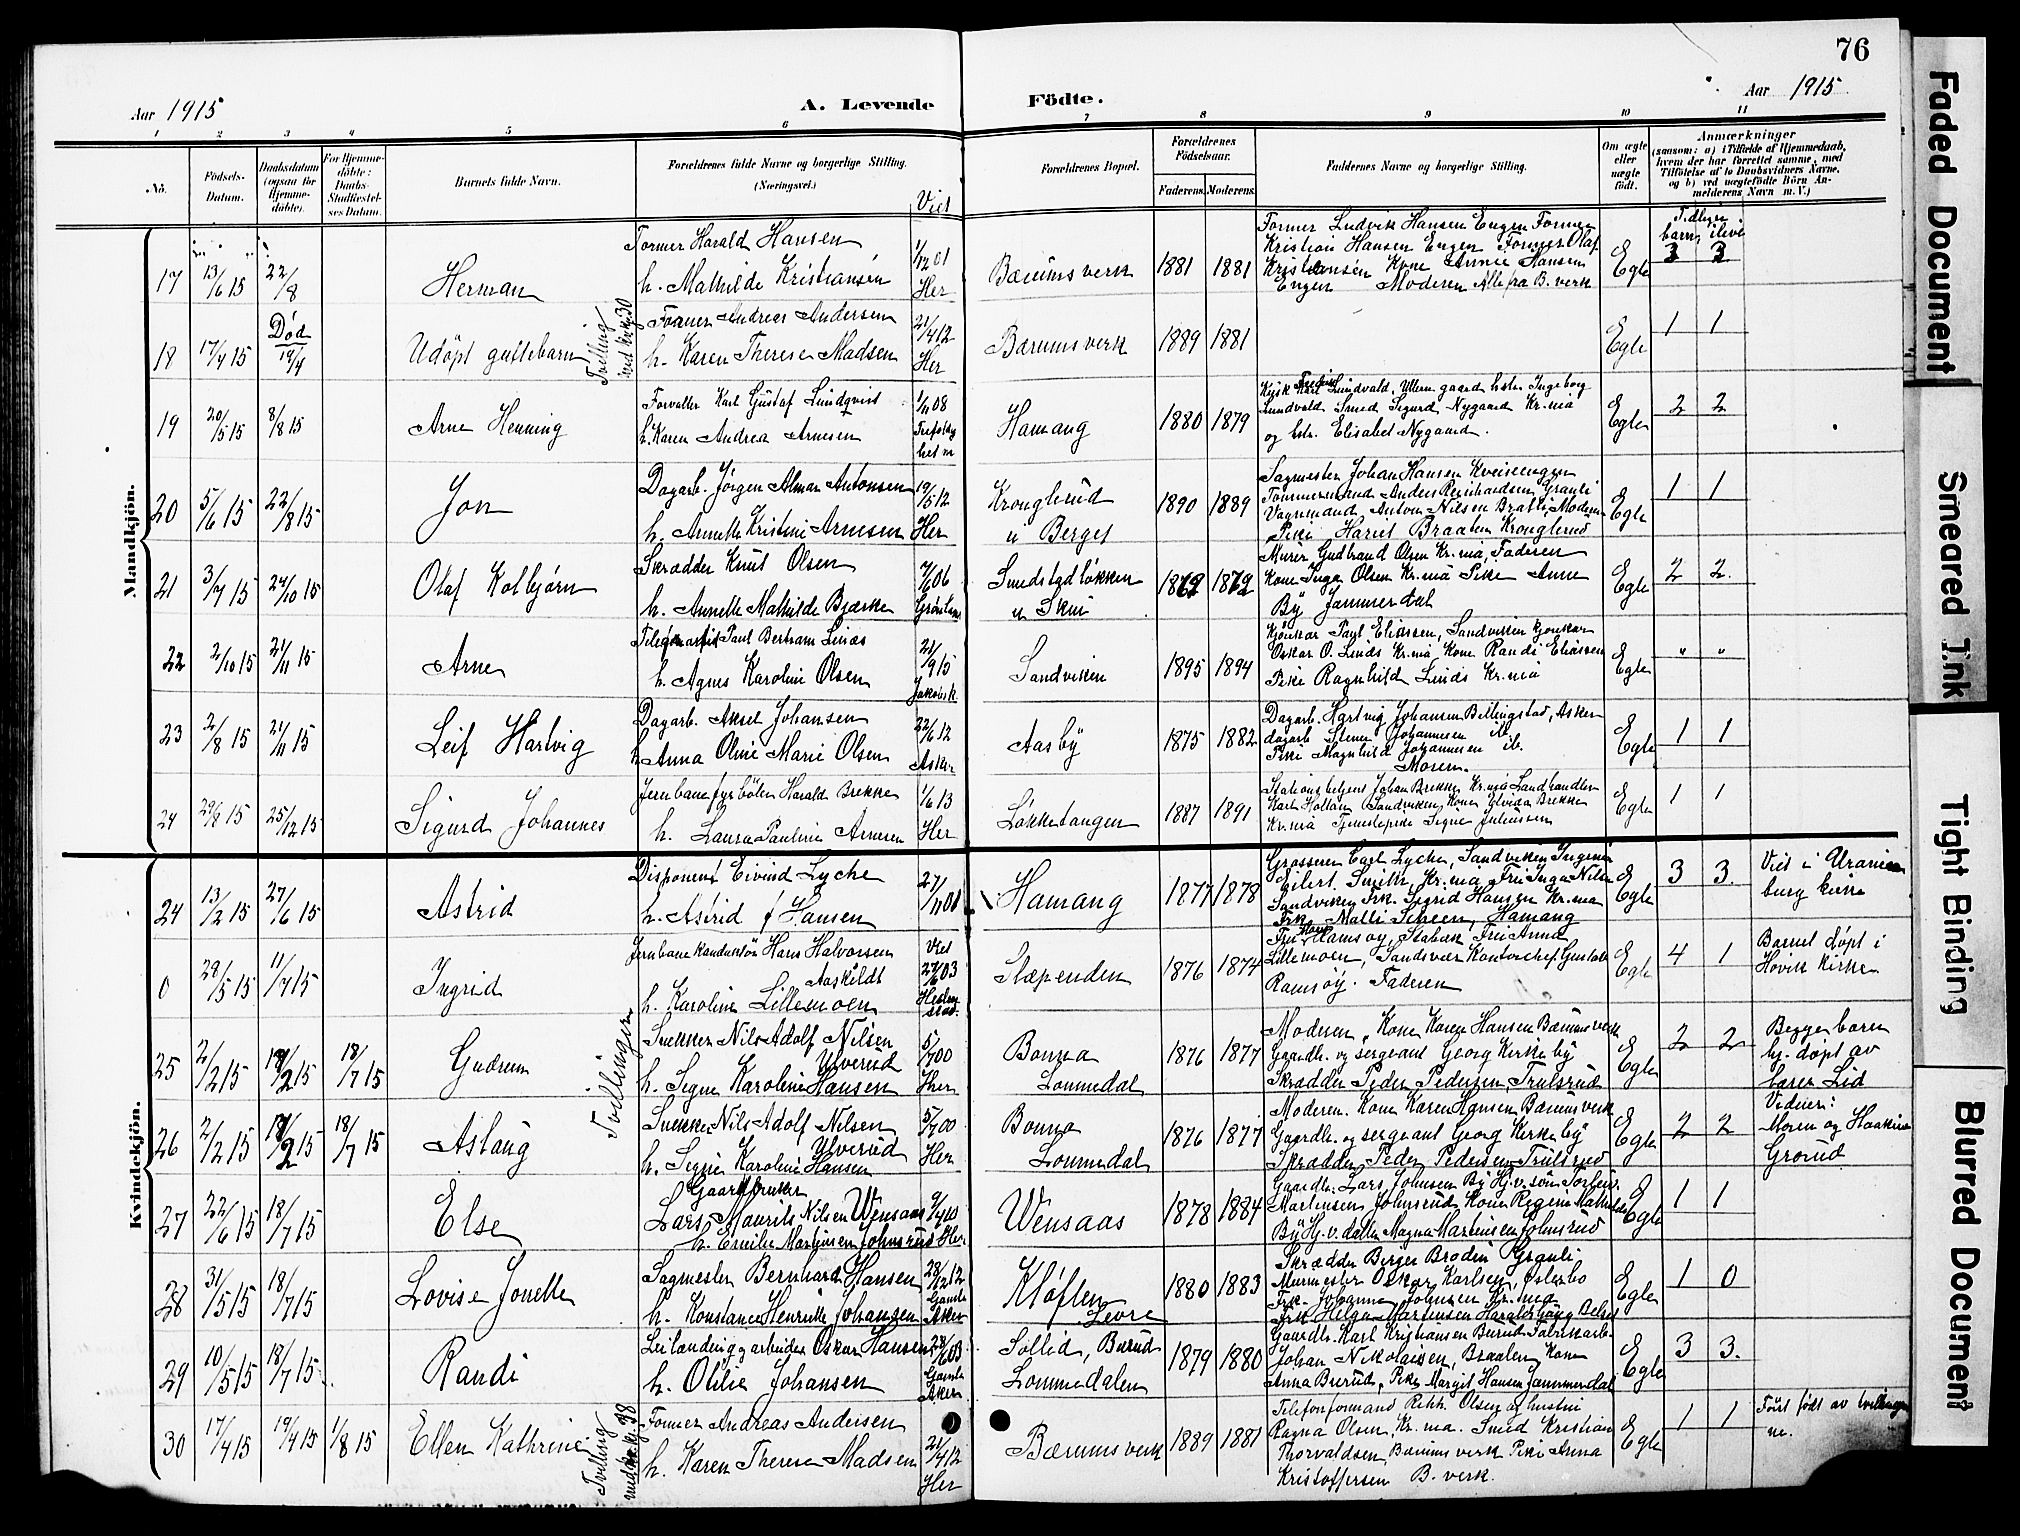 76
Aar 1915
A. Levende
Födte.
Aar 1915
1 2 3 4 5 6 7 8 9 10 11
No.
Födsels-
Datum.
Daabsdatum
(ogsaa for
Hjemme-
döbte).
For Hjemme-
döbte:
Daabs-
Stadfæstel-
ses Datum.
Barnets fulde Navn.
Forældrenes fulde Navne og borgerlige Stilling.
(Næringsvei.)
Viet
Forældrenes Bopæl.
Forældrenes
Födselsaar.
Faderens.
Moderens.
Faddernes Navne og borgerlige Stilling.
Om ægte
eller
uægte
födt.
Anmærkninger
(saasom: a) i Tilfælde af Hjemmedaab,
hvem der har forrettet samme, med
Tilföielse af to Daabsvidners Navne,
og b) ved uægtefödte Börn An-
melderens Navn m. V.)
Mandkjön.
17 13/6 15 22/8
Herman
Former Harald Hansen
h. Mathilde Kristiansen
1/12 01
Her
Bærums verk
1881 1881
Former Ludvik Hansen Engen Former
Kristian Hansen Engen Former Olaf
Kristiansen Kone Annie Hansen
Engen Moderen Alle fra B. verk
Egte
Tidligere
barn ilive
3 3
18 17/4 15
Død
19/4
Udöpt guttebarn
Tvilling
med kvk. 30
Former Andreas Andersen
h. Karen Therese Madsen
21/4 12
Her
Bærums verk
1889 1881
Egte
1 1
19 20/5 15 8/8 15
Arne Henning
Forvalter Karl Gustaf Lundqvist
h. Karen Andrea Arnesen
1/11 08
Hamang
1880 1879
Lundvald Smed Sigurd Nygaard Kr.nia
og hstr. Elisabet Nygaard.
Egte
2 2
20 5/6 15 22/8 15
Jon
Dagarb. Jørgen Almar Antonsen
h. Annette Kristine Arnesen
19/5 12
Her
Kronglerud
u Berget
1890 1889
Sagmester Johan Hansen Kveiseengen
Tømmermand Anders Reinhardsen Grauli
Vognmand Anton Nilsen Bratli, Moderen
Pike Harit Braaten Kronglerud
Egte
1 1
21 3/7 15 24/10 15
Olaf Kolbjørn
Skrædder Knut Olsen
h. Annette Mathilde Bjerke
7/6 06
Smedstadløkken
u Skui
1879
Murer Gudbrand Olsen Kr.nia, Faderen
Kone Inga Olsen Kr.nia Pike Anne
By Jammerdal
Egte
2 2.
22 2/10 15 21/11 15
Arne
Telegrafist Paul Bertram Linds
h. Agnes Karoline Olsen
21/9 15
Jakobsk.
Sandviken
1895 1894
Kjøkar Paul Eliassen, Sandviken
Oskar O. Linds Kr.nia, Kone Randi Eliassen
Pike Ragnhild Linds Kr.nia
Egte
" "
23 2/8 15 21/11 15
Leif Hartvig
Dagarb. Aksel Johansen
h. Anna Oline Marie Olsen
22/6 12
Asker
Aasby
1875 1882
Dagarb. Hartvig Johansen Billingstad, Asker
dagarb Stener Johannesen ib.
Pike Magnhild Johannesen ib.
Moren.
Egte
1 1
24 29/8 15 25/12 15
Sigurd Johannes
Jernbanefyrböter Harald Brekke
h. Laura Pauline Arnesen
1/6 13
Her
Løkketangen
1887 1891
Stationsbetjent Johan Brekke Kr.nia Landhandler
Karl Holtan Sandviken, Kone Elvida Brekke
Kr.nia Tjenestepike Signe Juliussen
Egte
1 1
Kvindekjön.
24 13/2 15 27/6 15
Astrid
Disponent Eivind Lyche
h. Astrid f Hansen
27/11 01
Hamang
1877 1878
Grosserer Carl Lyche, Sandviken Ingeniør
Eilert Smith, Kr.nia Fru Inga Nilsen
Sandviken Frk. Sigrid Hansen Kr.nia
Frk. Malli Scheen, Hamang
Egte
3 3.
Viet i Uranien
burg kirke
0 28/5 15 11/7 15
Ingrid
Jernbanekonduktör Hans Halvorsen
Aaskildt
h. Karoline Lillemoen
Viet
27/6 03
Slæpenden
1876 1874
Fru Ramsøy, Stabæk Fru Anna
Lillemoen, Sandsvær Kontorchef Gustav
Ramsöy. Faderen
Egte
4 1
Barnet döpt i
Hövik Kirke
25 2/2 15 18/2 15 18/7 15
Gudrun
Tvillinger
Snekker Nils Adolf Nilsen
Ulverud
h. Signe Karoline Hansen
5/7 00
Her
Bonna
Lommedal
1876 1877
Moderen, Kone Karen Hansen Bærumsverk
Gaardbr. og sergeant Georg Kirkeby
Skrædder Peder Pedersen, Trulsrud
Egte
2 2
Begge barn
hj. döpt av
lærer Lid
Vidner:
Moren og Haakon
Grorud
26 2/2 15 18/2 15 18/7 15
Aslaug
Snekker Nils Adolf Nilsen
Ulverud
h. Signe Karoline Hansen
5/7 00
Her
Bonna
Lommedal
1876 1877
Moderen. Kone Karen Hansen, Bærumsverk
Gaardbr. og sergeant Georg Kirkeby
Skrædder Peder Pedersen Trulsrud
Egte
2 2
27 22/6 15 18/7 15
Else
Gaardbruker
Lars Maurits Nilsen Wensaas
h. Emilie Martinsen Johnsrud
9/4 10
Her
Wensaas
1878 1884
Gaardbr. Lars Johnsen By Hj.v. søn Torleiv
Martinsen Johnsrud Kone Regine Mathilde
By Hj. v. datter Magna Martinsen Johnsrud
Egte
1 1
28 31/5 15 18/7 15
Lovise Jonette
Sagmester Bernhard Hansen
h. Konstance Henriette Johansen
28/12 12
Gamle
Aker
Kløften
Levre
1880 1883
Skrædder Birger Brodin Grauli
Murmester Oskar Karlsen, Østerbo
Frk. Johanne Johnsen Kr.nia
Frk Helga Martinsen Haraldshaug Belset
Egte
1 0
29 10/5 15 18/7 15
Randi
Leilænding og arbeider Oskar Hansen
h. Otilie Johansen
Gamle
Aker
Sollid, Burud
Lommedalen
1879 1880
Gaardbr. Karl Kristiansen Burud Fabrikarb.
Johan Nikolaisen, Braaten, Kone
Anna Burud, Pike Margit Hansen Jammerdal
Egte
3 3.
30 17/4 15 19/4 15 1/8 15
Ellen Kathrine
Tvilling
Former Andreas Andersen
h. Karen Therese Madsen
21/4 12
Her
Bærums verk
1889 1881
Telefonformand Olsen og hustru
Ragna Olsen, Kr.nia. Smed Kristian
Thorvaldsen Bærums verk Pike Anna
Kristoffersen B. verk.
Egte
1 1
Først født av tvillingene
ne.
Faded Document
Smeared Ink
Tight Binding
Blurred Document